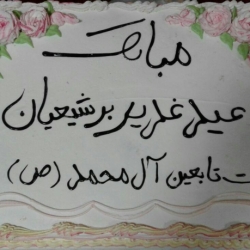 مبارک
عید غدیر بر شیعیان
ت تابعین آل محمد (ص)